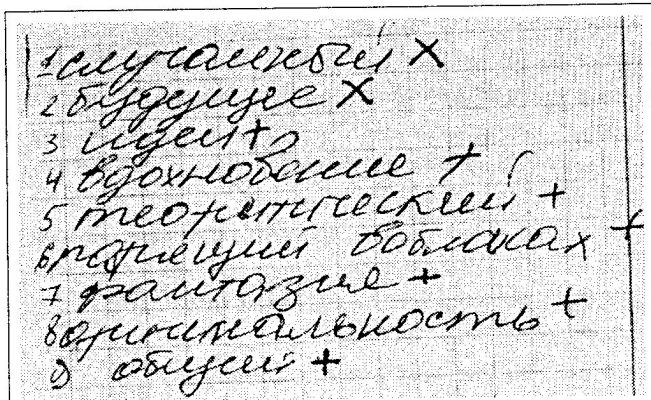 1 случайный X
2 будущее X
3 идеи +
4 вдохновение +
5 теоретический +
6 парящий воблаках +
7 фантазие +
8 оригинальность +
9 общий +